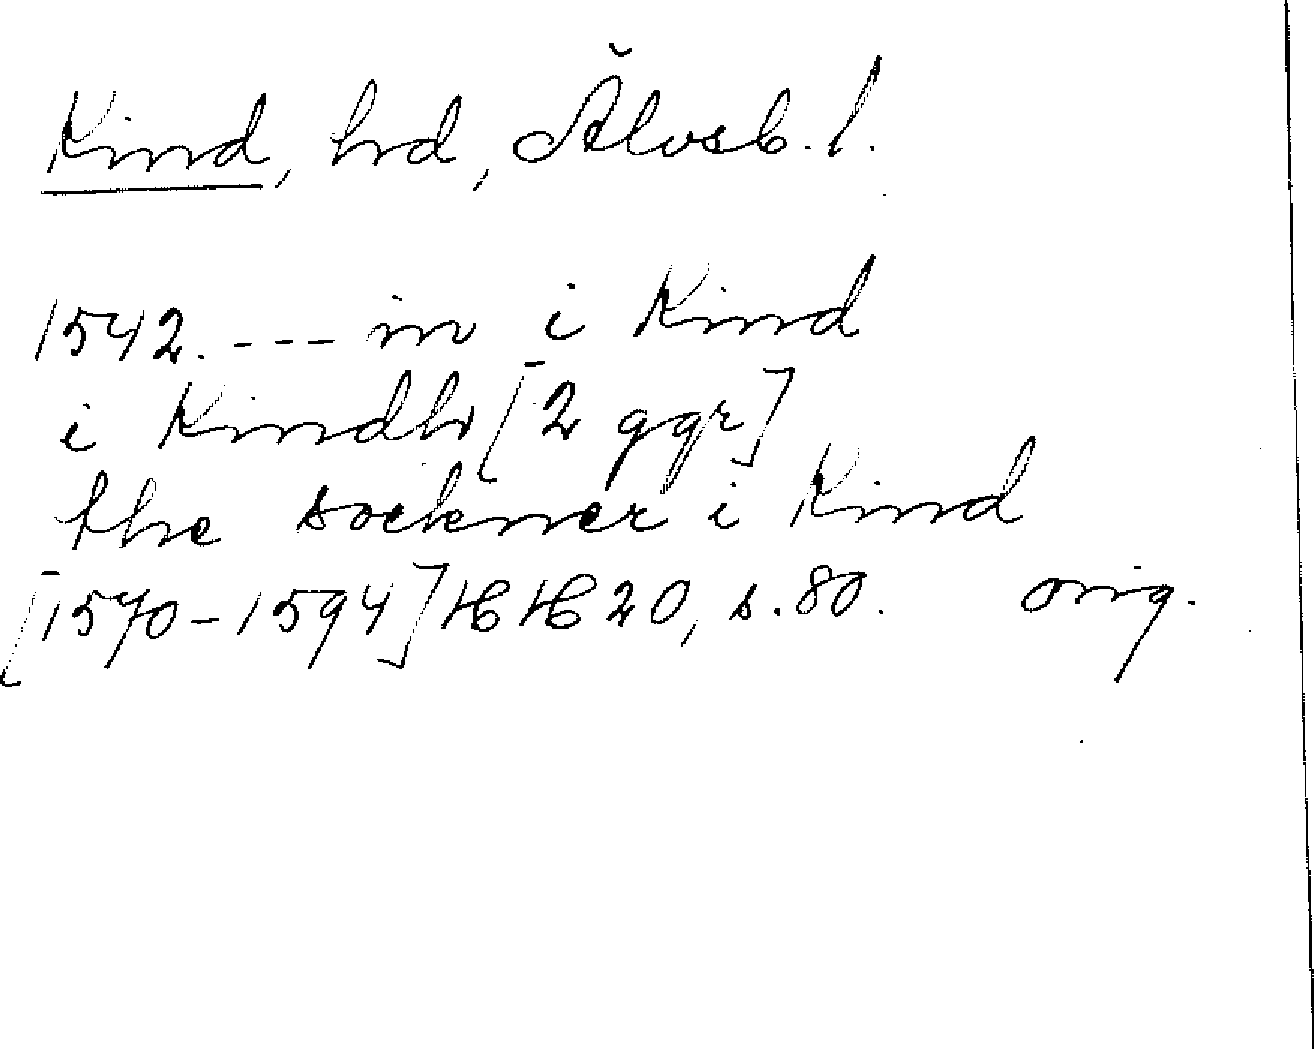 Kind, hd, Älvsb. l.
1542. --- in i Kind
i Kindh [2 ggr]
the sockner i Kind
[1570-1594] HH 20, s. 80. orig.